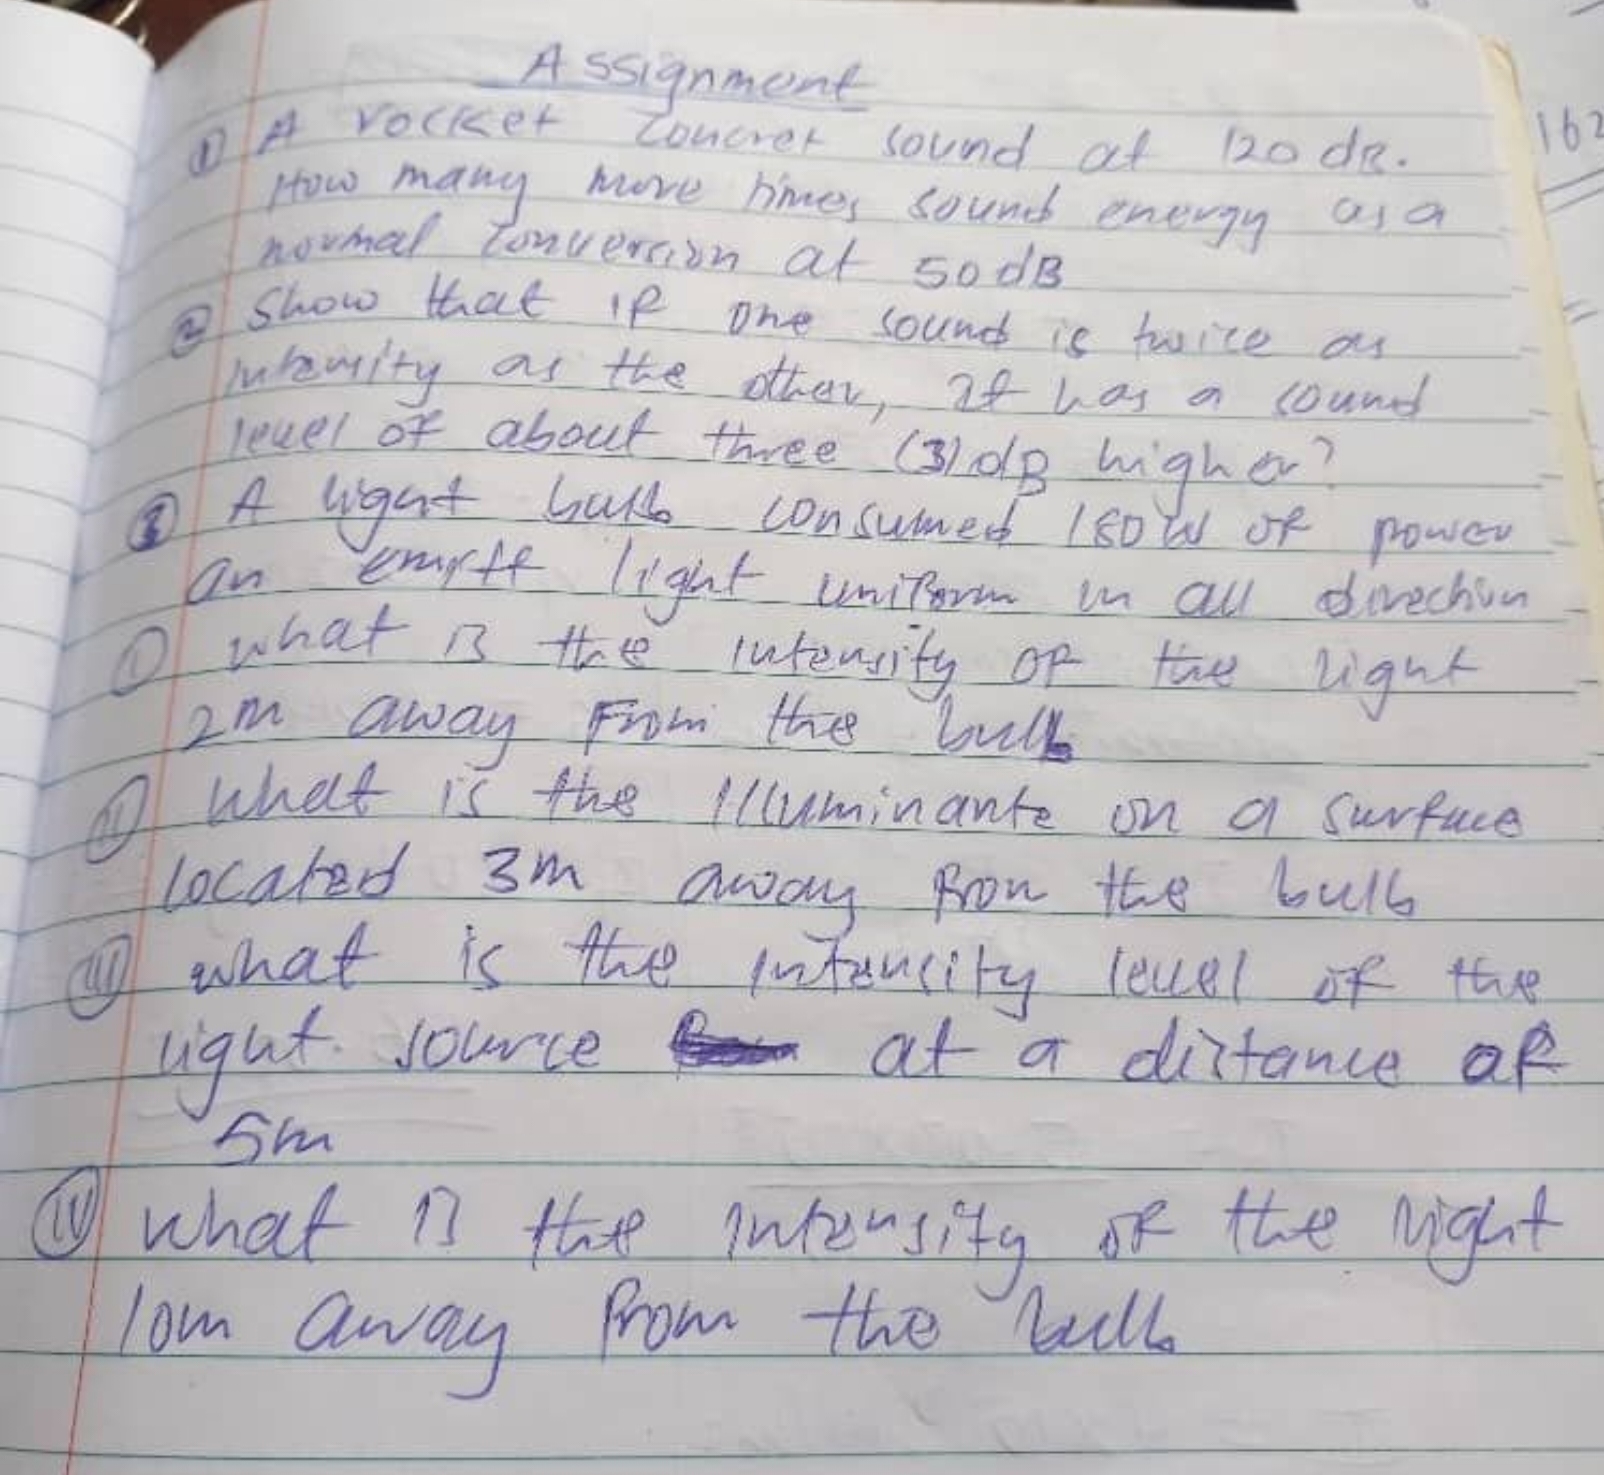 Assignment
① A rocket concret sound at 120 dB.
How many more times sound energy as a
normal conversion at 50 dB
② Show that if one sound is twice as
intensity as the other, It has a sound
level of about three (3) dB higher?
③ A light bulb consumed 150 W of power
an emitt light uniform in all direction
① what is the intensity of the light
2m away From the bulb
ⅱ what is the Illuminante on a surface
located 3m away from the bulb
ⅲ what is the intensity level of the
light source at a distance of
5m
ⅳ what is the intensity of the light
10m away from the bulb
162